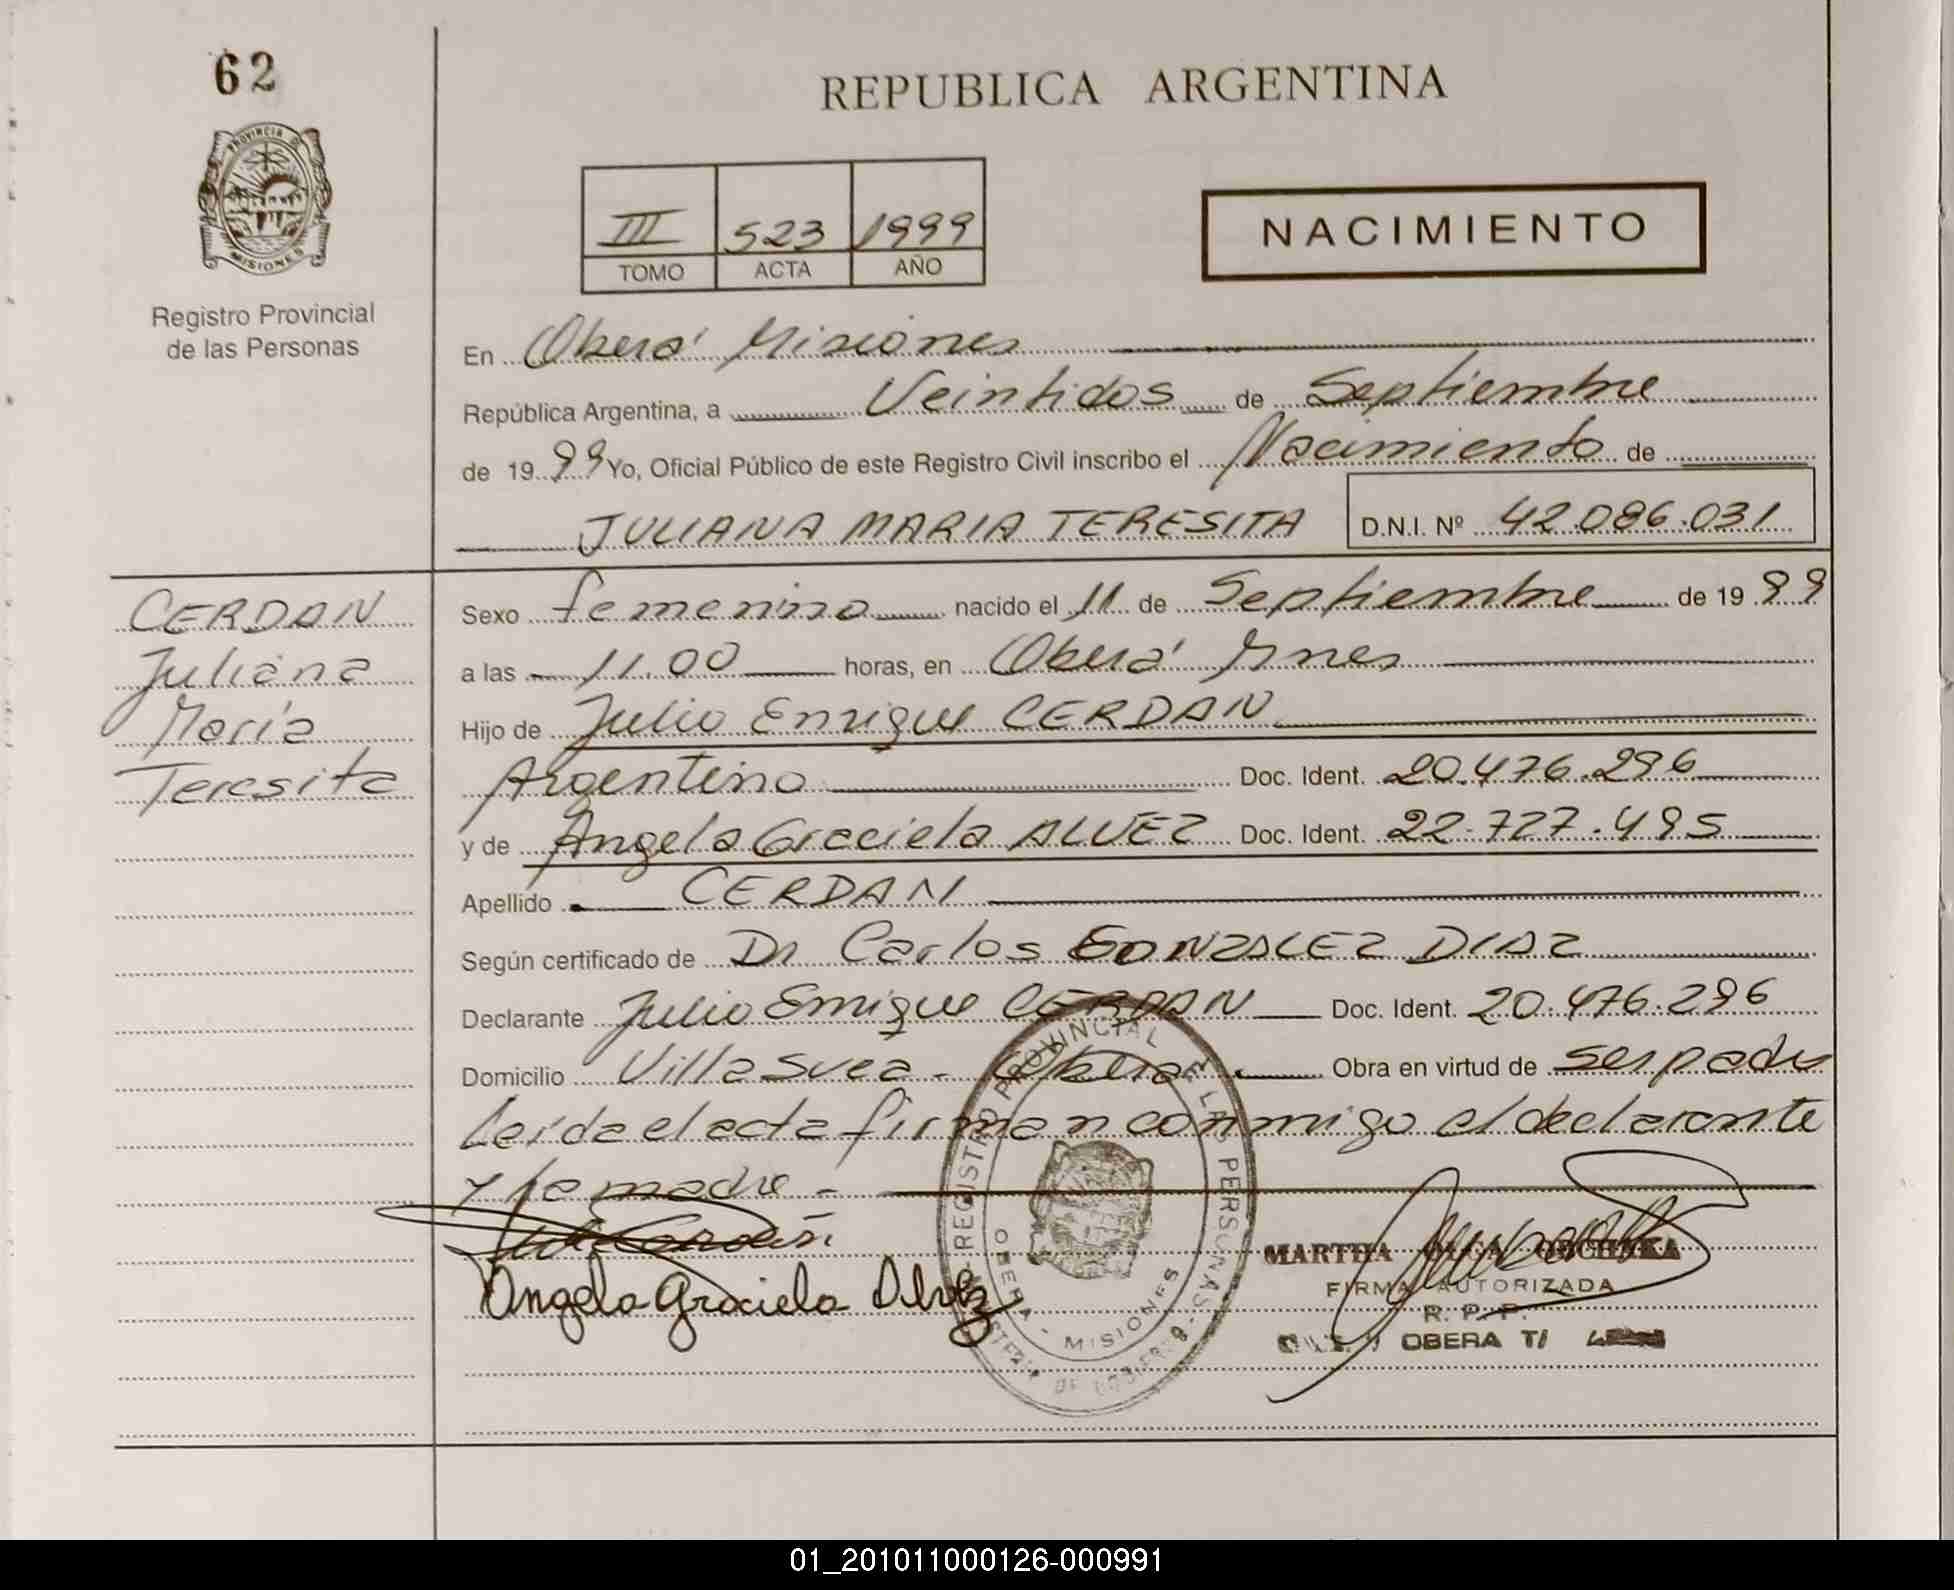 62
REPUBLICA ARGENTINA
PROVINCIA DE
MISIONES
Registro Provincial
de las Personas
III 523 1999
TOMO ACTA AÑO
NACIMIENTO
En Oberá Misiones
República Argentina, a Veintidos de Septiembre
de 1999 Yo, Oficial Público de este Registro Civil inscribo el Nacimiento de
JULIANA MARIA TERESITA D.N.I. Nº 42.086.031
CERDAN
Juliana
María
Teresita
Sexo femenino nacido el 11 de Septiembre de 1999
a las 11.00 horas, en Oberá Mnes
Hijo de Julio Enrique CERDAN
Argentino Doc. Ident. 20.476.296
y de Angela Graciela ALVEZ Doc. Ident. 22.727.495
Apellido CERDAN
Según certificado de Dr Carlos GONZALEZ DIAZ
Declarante Julio Enrique CERDAN Doc. Ident. 20.476.296
Domicilio Villa Svea - Oberá. Obra en virtud de ser padre
Leída el acta firman conmigo el declarante
y la madre -
Angela Graciela Alvez
REGISTRO PROVINCIAL DE LAS PERSONAS
OBERA - MISIONES
MINISTERIO DE GOBIERNO
MARTHA OLGA
FIRMA AUTORIZADA
R. P. P.
OBERA
01_201011000126-000991